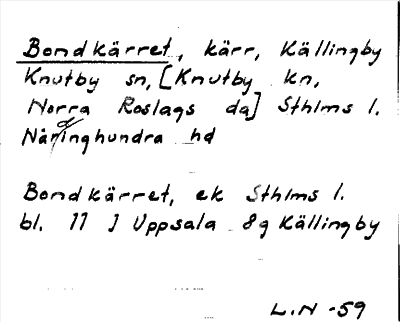 Bondkärret, kärr, Källingby
Knutby sn, [Knutby kn,
Norra Roslags da] Sthlms l.
Närdinghundra hd
Bondkärret, ek Sthlms l.
bl. 11 J Uppsala 8g Källingby
L.N -59